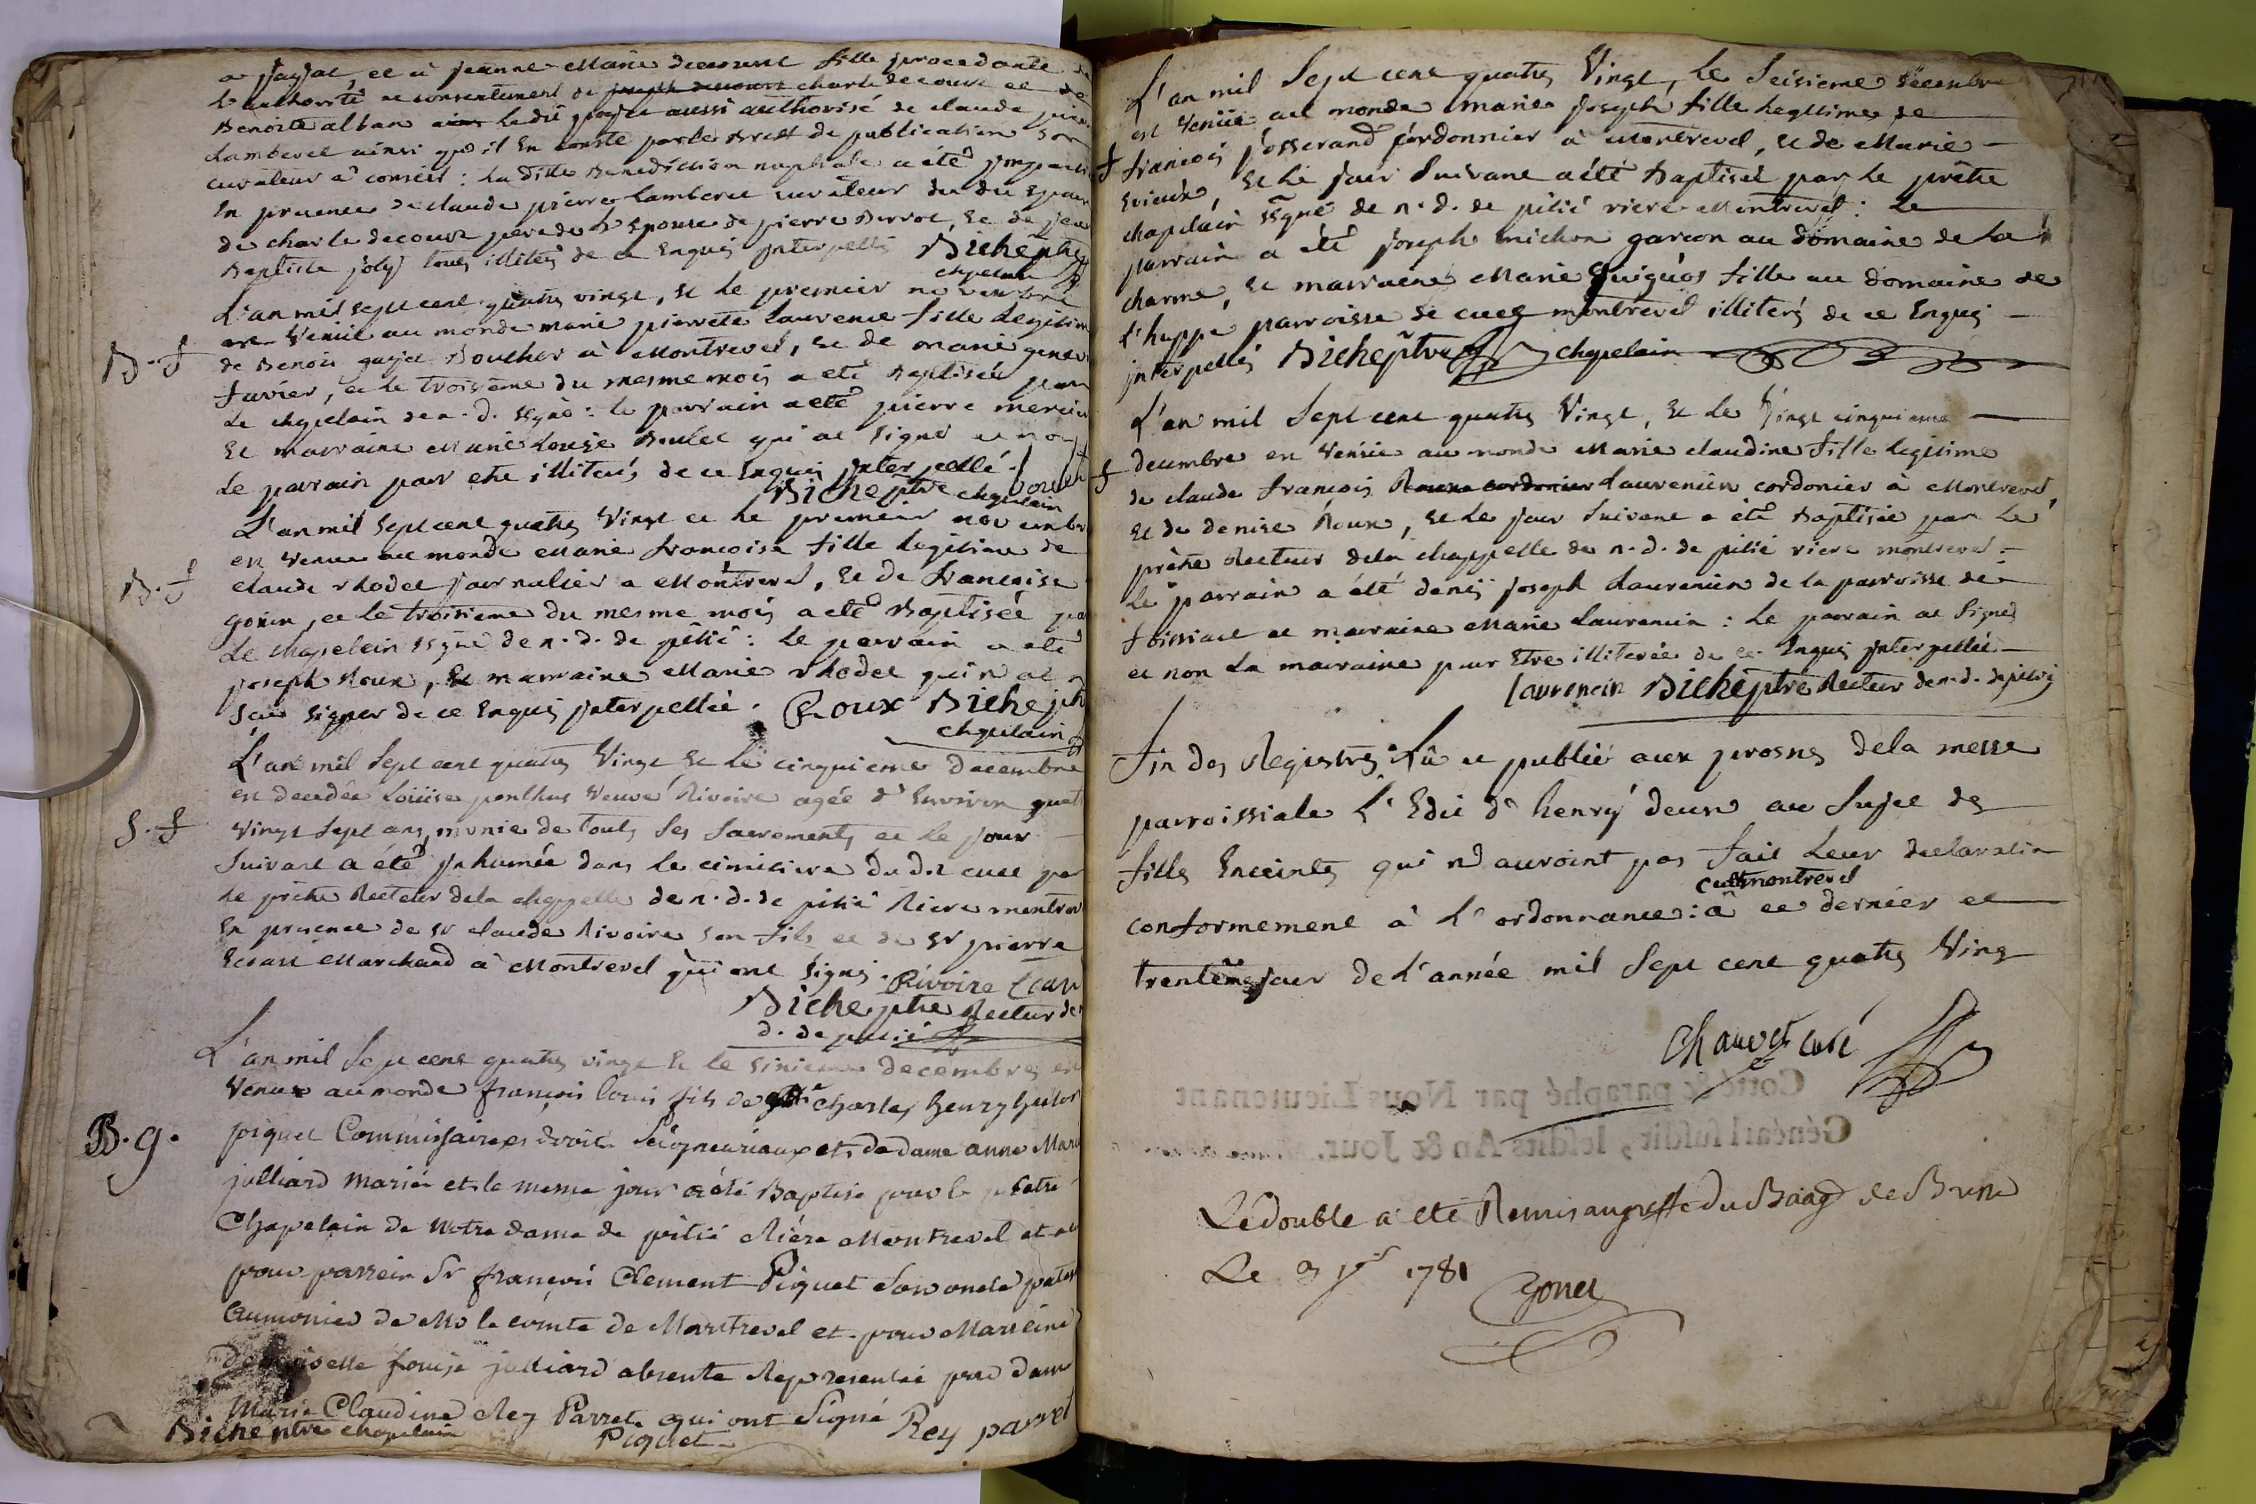 a jayat, et a jeanne Marie decourt fille procedante de
l'authorité et consentement de joseph decourt charle decourt et de
Benoite alban le dit aussi authorisé de claude pierre
Lamberet ainsi qu'il En conste par les Brest de publication son
curateur a conseil : La ditte Benediction nuptiale a été
En presence de claude pierre Lamberet curateur du dit Epoux
de charle decourt pere de l'Epouse de pierre Berrot, Et de jean
Baptiste joly tous illiterés de ce Enquis jnterpellés Biche ptre
chpelain
L'an mil sept cent quatre vingt, Et le premier novembre
est Venüe au monde marie pierrete Laurence fille Legitime
B. f de Benoit Boucher a Montrevel, Et de marie
fuvier, et le troisieme du mesme mois a eté Baptisée par
Le chpelain de n. d. : le parrain a eté pierre mercier
Et marraine Marie Louise Boulet qui at signé et non
Le parrain pour etre illiteré de ce Enquis jnterpellé.
Biche ptre chpelain
L'an mil sept cent quatre Vingt et le premier novembre
est Venue au monde Marie francoise fille Legitime de
B. f claude Rhodet journalier a Montrevel, Et de francoise
gonin, et le troisieme du mesme mois a eté Baptisée par
Le chapelein ssgné de n. d. de pitié : Le parrain a eté
joseph Roux, Et marraine Marie Rhodet qui n'at
seu signer de ce Enquis jnterpellée. Roux Biche ptre
chpelain
L'an mil Sept cent quatre Vingt Et Le cinquieme Decembre
est decedée Loüise ponthus Veuve Rivoire agée d'Environ quatre
S. f Vingt sept ans, munie de touts ses sacrements et Le jour
Suivant a été jnhumée dans le cimitiere du dit cuet par
Le prêtre Recteur dela chappelle de n. d. de pitié Riere montrevel
En presence de sr claude Rivoire son fils et de sr pierre
Ecrase Marchand à Montrevel qui ont signés. Rivoire
Biche ptre Recteur de n.
d. de pitié
L'an mil Sept cent quatre vingt Et le sixieme decembre est
Venu au monde françois louis fils de Charles henry hector
B. g. piquet Commissaire es droit Seigneuriaux et de dame anne Marie
julliard mariée et le meme jour a été Baptisé par le pretre
Chapelain de Notre dame de pitié Riére Montrevel et a eu
pour parrein Sr françois Clement Piquet son oncle paternel
Aumonier de Mr le comte de Montrevel et pour Marreine
demoiselle louise julliard absente Representée par dame
Marie Claudine Rey Parret qui ont Signé Rey parret
Biche ptre chapelain Piquet
L'an mil Sept cent quatre Vingt, Le Seisieme decembre
est Venüe au monde marie joseph fille Legitime de
f francois josserand cordonnier à Montrevel, et de Marie
Evieux, Et Le jour Suivant a été Baptisée par Le prêtre
chapelain ssgné de n. d. de pitié riere Montrevel : Le
parrain a été joseph michon garcon au domaine de La
charme, Et marraine Marie guigues fille au domaine de
l'huppe parroisse de cuet montrevel illiterés de ce Enquis
jnterpellés Biche ptre chpelain
L'an mil Sept cent quatre Vingt, Et Le Vingt cinquieme
decembre est Venüe au monde Marie claudine fille Legitime
f de claude francois Roux cordonier Laurencin cordonier à Montrevel,
Et de denise Roux, Et Le jour Suivant a été Baptisée par Le
prêtre Recteur dela chappelle de n. d. de pitié riere montrevel.
Le parrain a été denis joseph Laurencin de la parroisse de
foissiat et marraine Marie Laurencin : Le parrain at Signé
et non La marraine pour Etre illiterée de ce Enquis jnterpellée
Laurencin Biche ptre Recteur de n. d. de pitié
Fin des Registres Lû et publié aux prosnes dela messe
parroissiale L'Edit d'henry deux au Sujet des
filles Enceintes qui n'auroint pas fait Leur declaration
cuet montrevel
conformement à L'ordonnance : à ce dernier et
trentieme jour de L'année mil Sept cent quatre Ving
Chauvet curé
Cotté & paraphé par Nous Lieutenant
Général susdit, lesdits An & Jour.
Le double a été Remis au greffe du Baage de Bresse
Le 1781
Gonet